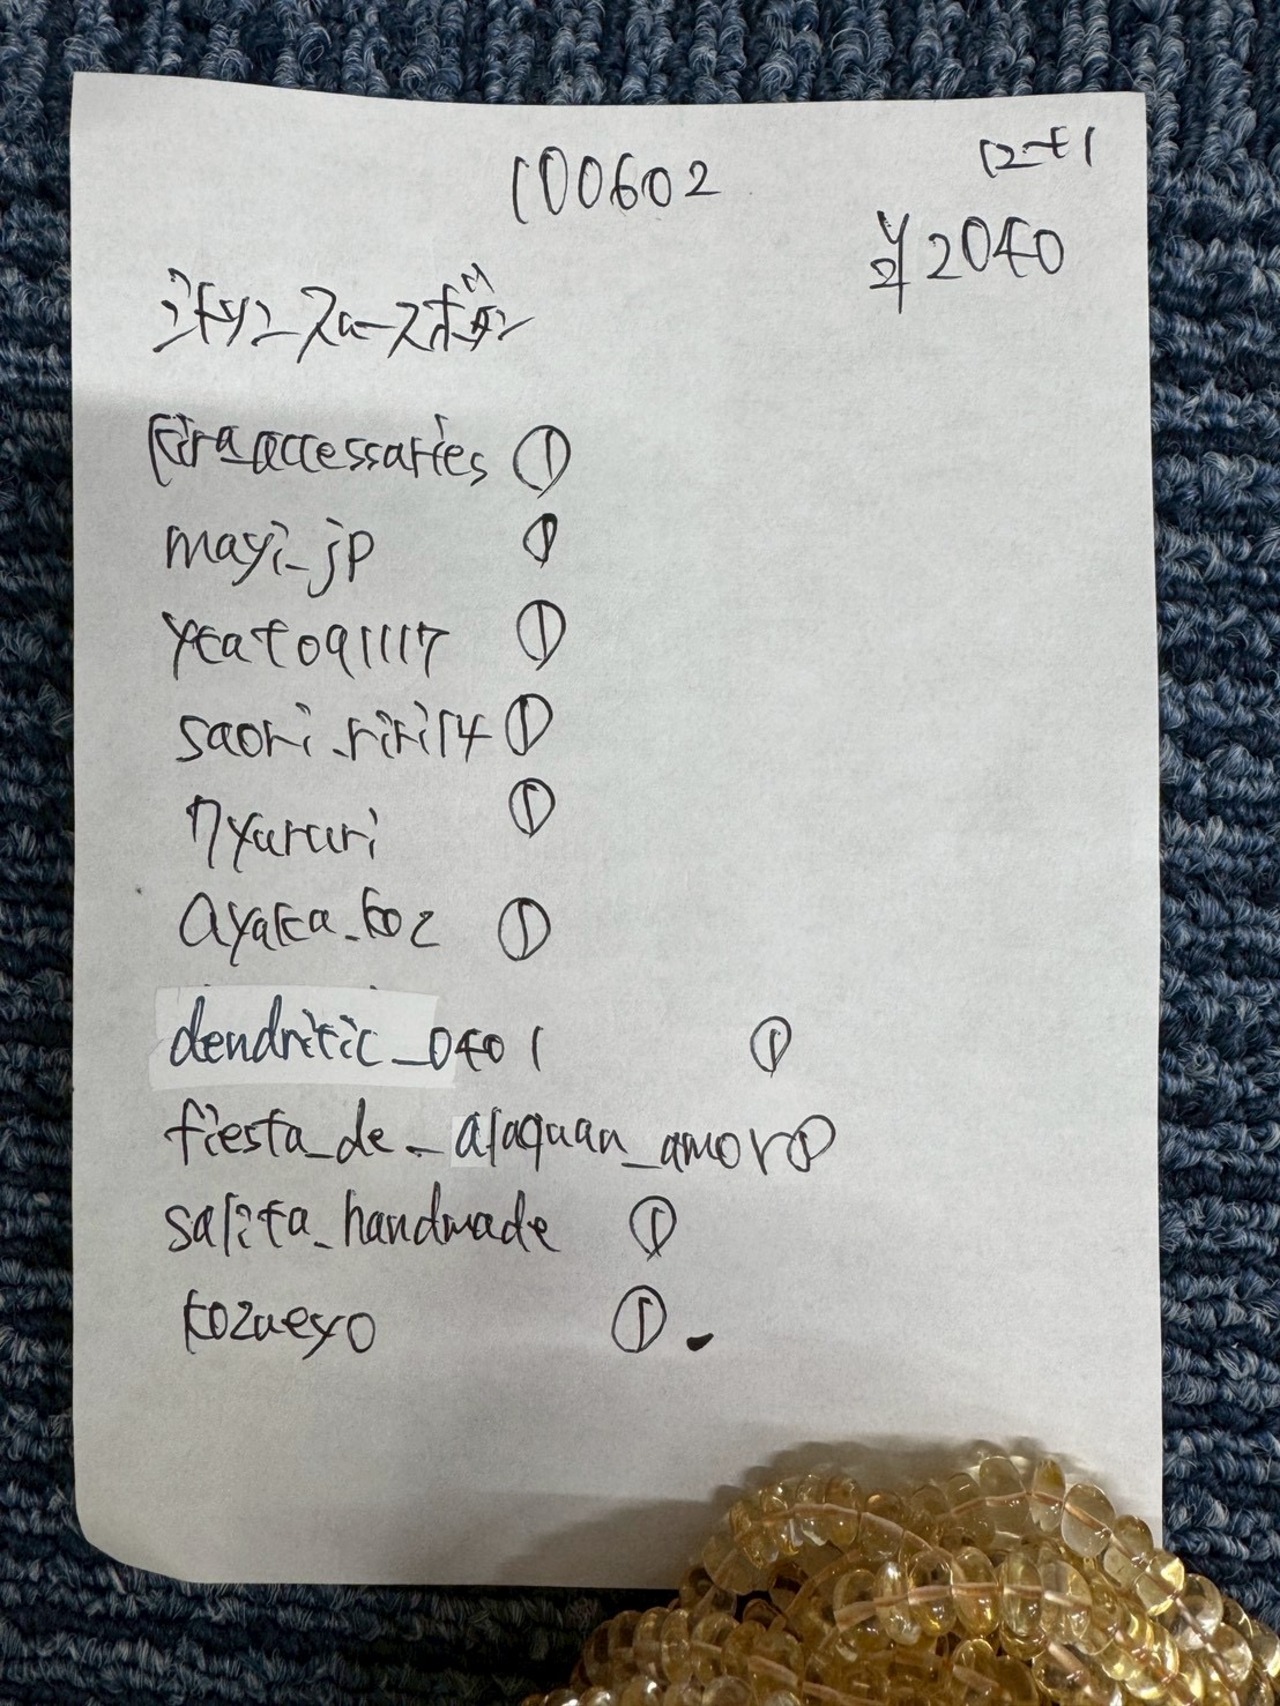 100602
¥2040
シトリンスムースボタン
kira_accessaries ①
mayi_jp ①
ykato91117 ①
saori_riri14 ①
nyaruri ①
ayaka_koz ①
dendritic_0401 ①
fiesta_de_alaquan_amor ①
salita_handmade ①
kozueyo ①